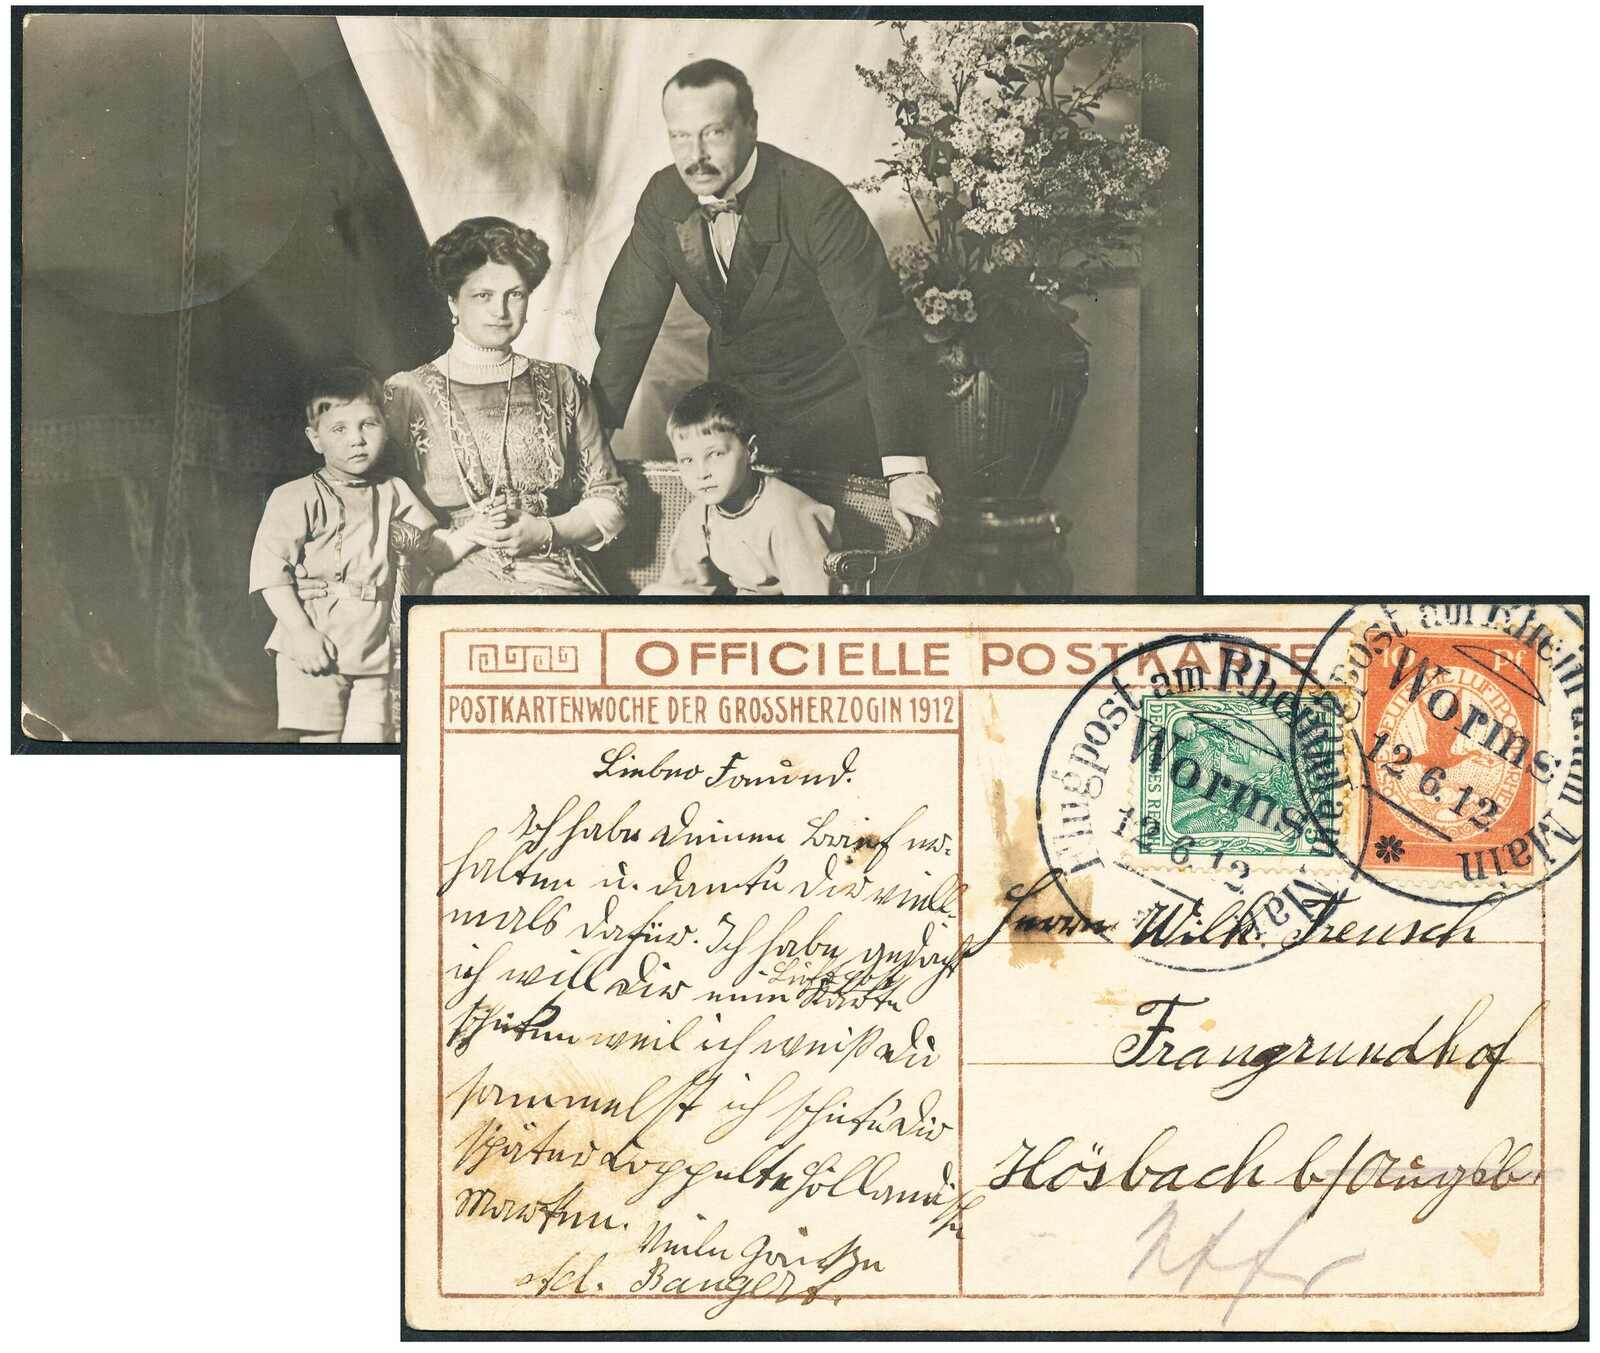 OFFICIELLE POSTKARTE
POSTKARTENWOCHE DER GROSSHERZOGIN 1912
Lieber Freund.
Ich habe Deinen Brief er-
halten u. danke Dir viel-
mals dafür. Ich habe gedacht
ich will Dir eine Luftpost
Karte
schicken weil ich weiß du
sammelst ich schicke Dir
später doppelte Holländische
Marken.
Viele Grüße
Ad. Bangert.
Flugpost am Rhein u. am Main
Worms
12 6. 12
DEUTSCHES REICH
5
Flugpost am Rhein u. am Main
Worms
12 6. 12
10 Pf
Herrn Wilh. Treusch
Frangrundhof
Hösbach b/Augsb.